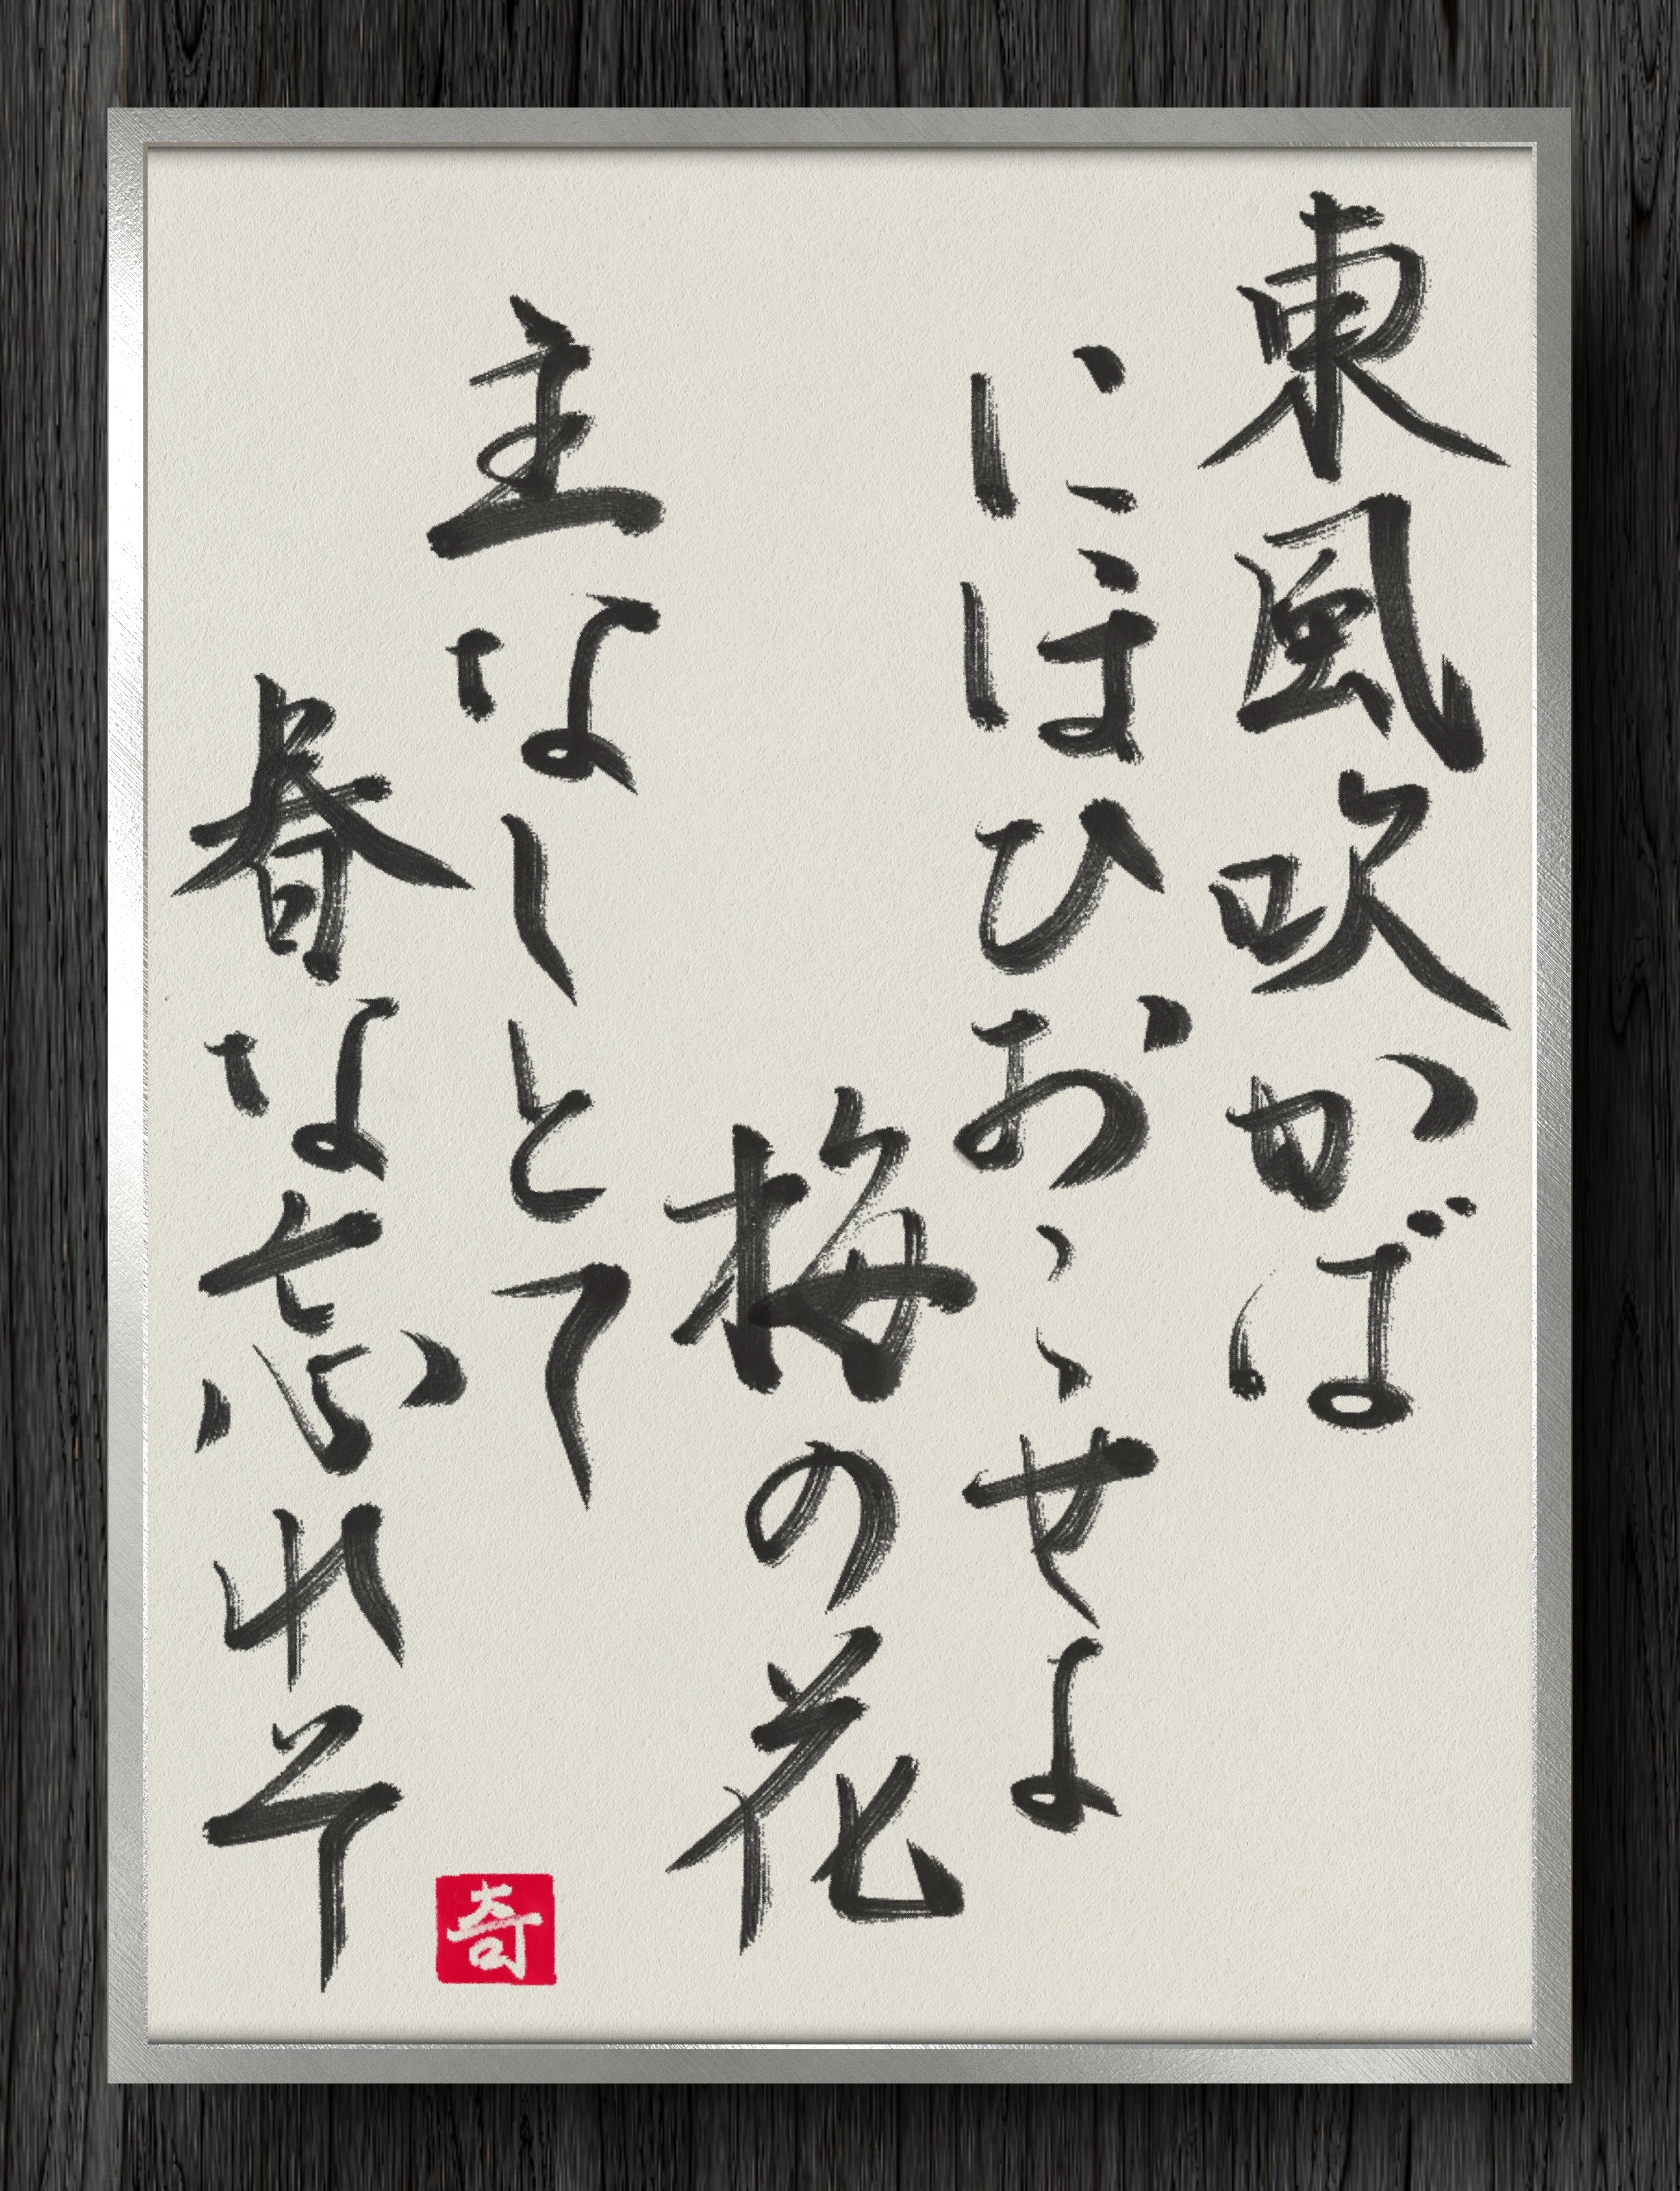 東風吹かば
にほひおこせよ
梅の花
主なしとて
春な忘れそ
奇